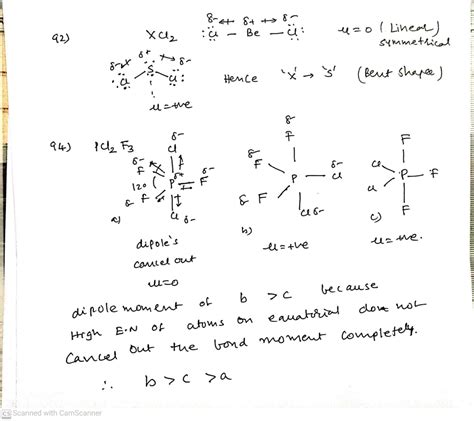 92) XCl2 δ- δ+ δ- :Cl - Be - Cl: μ=0 (Linear) symmetrical
δ- δ+ δ-
S
:Cl Cl:
Hence 'X' → 'S' (Bent Shape)
μ=+ve
94) PCl2F3
δ- Cl
F
120 P F
F
Cl δ-
a)
dipole's
cancel out
μ=0
δ- F
δ- F
P - Cl
δ F
Cl δ-
b)
μ=+ve
F
Cl
P - F
Cl
F
c)
μ=+ve.
dipole moment of b > c because
High E.N of atoms on equatorial does not
Cancel out the bond moment completely.
∴ b > c > a
CS Scanned with CamScanner